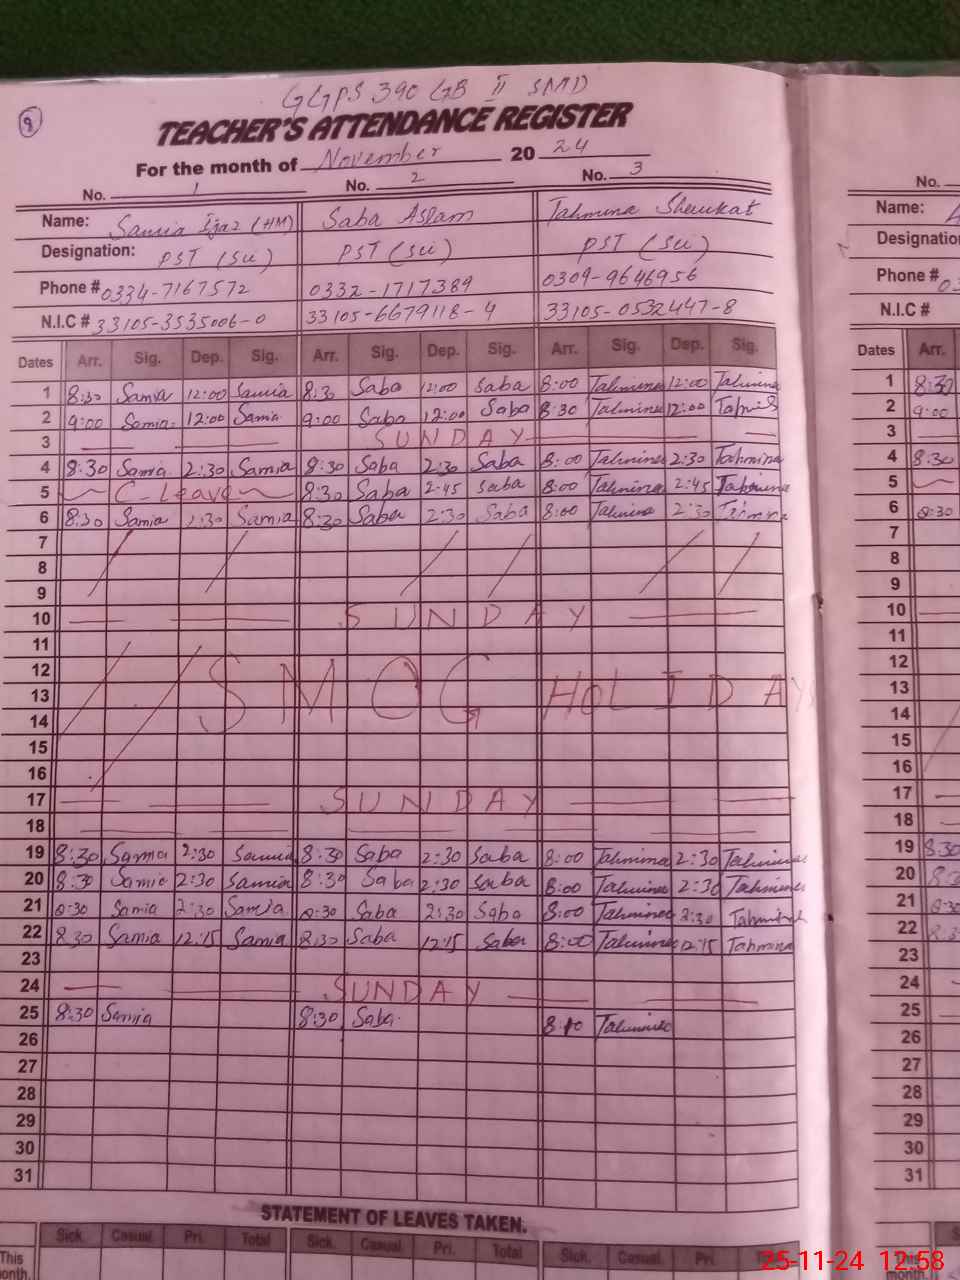 9
GGPS 390 GB II SMD
TEACHER'S ATTENDANCE REGISTER
For the month of November 2024
No. 1 No. 2 No. 3 No.
Name: Samia Ijaz (HM) Saba Aslam Tahmina Shaukat Name:
Designation: PST (Sci) PST (Sci) PST (Sci) Designation
Phone # 0334-7167572 0332-1717389 0309-9646956 Phone # 03
N.I.C # 33105-3535006-0 33105-6679118-4 33105-0532447-8 N.I.C #
Dates Arr. Sig. Dep. Sig. Arr. Sig. Dep. Sig. Arr. Sig. Dep. Sig. Dates Arr.
1 8:30 Samia 12:00 Samia 8:30 Saba 12:00 Saba 8:00 Tahmina 12:00 Tahmina 1 8:30
2 9:00 Samia 12:00 Samia 9:00 Saba 12:00 Saba 8:30 Tahmina 12:00 2 9:00
3 SUNDAY 3
4 8:30 Samia 2:30 Samia 8:30 Saba 2:30 Saba 8:00 Tahmina 2:30 Tahmina 4 8:30
5 C-Leave 8:30 Saba 2:45 Saba 8:00 Tahmina 2:45 Tahmina 5
6 8:30 Samia 2:30 Samia 8:30 Saba 2:30 Saba 8:00 Tahmina 2:30 Tahmina 6 8:30
7 7
8 8
9 9
10 SUNDAY 10
11 11
12 12
13 SMOG HOLIDAYS 13
14 14
15 15
16 16
17 SUNDAY 17
18 18
19 8:30 Samia 2:30 Samia 8:30 Saba 2:30 Saba 8:00 Tahmina 2:30 Tahmina 19 8:30
20 8:30 Samia 2:30 Samia 8:30 Saba 2:30 Saba 8:00 Tahmina 2:30 Tahmina 20
21 8:30 Samia 2:30 Samia 8:30 Saba 2:30 Saba 8:00 Tahmina 2:30 Tahmina 21 8:30
22 8:30 Samia 12:15 Samia 8:30 Saba 12:15 Saba 8:00 Tahmina 12:15 Tahmina 22
23 23
24 SUNDAY 24
25 8:30 Samia 8:30 Saba Tahmina 25
26 26
27 27
28 28
29 29
30 30
31 31
STATEMENT OF LEAVES TAKEN.
Sick. Casual. Pri. Total Sick. Casual. Pri. Total Sick. Casual. Pri.
This month. This month
25-11-24 12:58